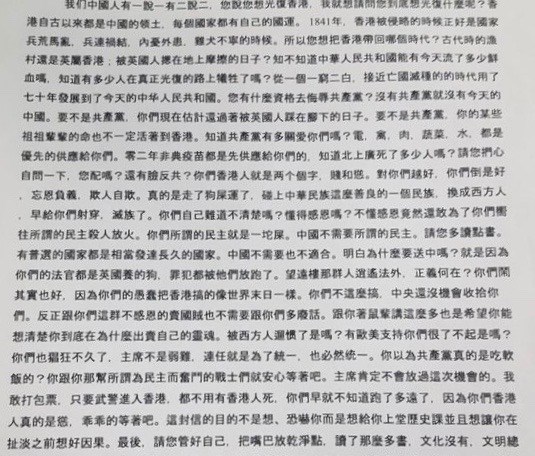 我们中國人有一說一有二說二，您說您想光復香港，我就想請問您到底想光復什麼呢？香
港自古以來都是中國的領土，每個國家都有自己的國運。1841年，香港被侵略的時候正好是國家
兵荒馬亂，兵連禍結，內憂外患，雞犬不寧的時候。所以您想把香港帶回哪個時代？古代時的漁
村還是英屬香港；被英國人摁在地上摩擦的日子？知不知道中華人民共和國能有今天流了多少鮮
血嗎，知道有多少人在真正光復的路上犧牲了嗎？從一個一窮二白，接近亡國滅種的的時代用了
七十年發展到了今天的中华人民共和國。您有什麼資格去侮辱共產黨？沒有共產黨就沒有今天的
中國。要不是共產黨，你們現在估計還過著被英國人踩在腳下的日子。要不是共產黨，你的某些
祖祖輩輩的命也不一定活著到香港。知道共產黨有多關愛你們嗎？電，禽，肉，蔬菜，水，都是
優先的供應給你們。零二年非典疫苗都是先供應給你們的，知道北上廣死了多少人嗎？請您捫心
自問一下，您配嗎？還有臉反共？你們香港人就是两个字，賤和慫。對你們越好，你們倒是好
，忘恩負義，欺人自欺。真的是走了狗屎運了，碰上中華民族這麼善良的一個民族，換成西方人
，早給你們射穿，滅族了。你們自己難道不清楚嗎？懂得感恩嗎？不懂感恩竟然還敢為了你們嚮
往所謂的民主殺人放火。你們所謂的民主就是一坨屎。中國不需要所謂的民主。請您多讀點書。
有普選的國家都是相當發達長久的國家。中國不需要也不適合。明白為什麼要送中嗎？就是因為
你們的法官都是英國養的狗，罪犯都被他們放跑了。望遠樓那群人逍遙法外，正義何在？你們鬧
其實也好，因為你們的愚蠢把香港搞的像世界末日一樣。你們不這麼搞，中央還沒機會收拾你
們。反正跟你們這群不感恩的賣國賊也不需要跟你們多廢話。跟你著鼠輩講這麼多也是希望你能
想清楚你到底在為什麼出賣自己的靈魂。被西方人邏慣了是嗎？有歐美支持你們很了不起是嗎？
你們也猖狂不久了，主席不是弱雞，連任就是為了統一，也必然統一。你以為共產黨真的是吃軟
飯的？你跟你那幫所謂為民主而奮鬥的戰士們就安心等著吧。主席肯定不會放過這次機會的。我
敢打包票，只要武警進入香港，都不用有香港人死，你們早就不知道跑了多遠了，因為你們香港
人真的是慫，乖乖的等著吧。這封信的目的不是想、恐嚇你而是想給你上堂歷史課並且想讓你在
扯淡之前想好因果。最後，請您管好自己，把嘴巴放乾淨點，讀了那麼多書，文化沒有，文明總